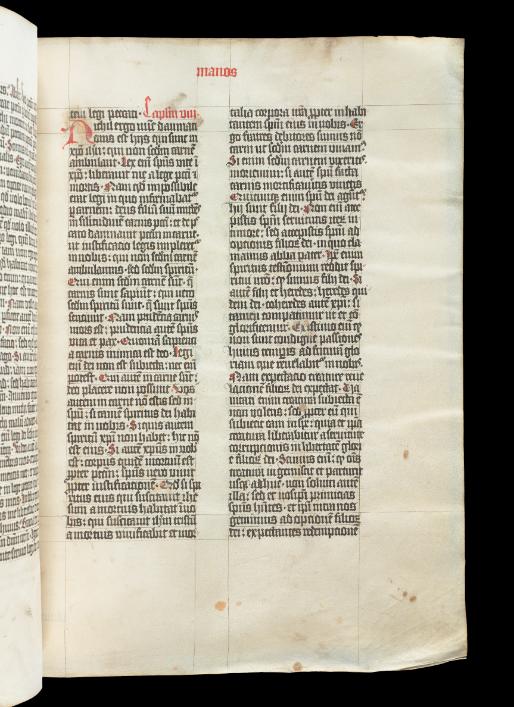 manos
tem legi peccati. Caplm viii.
Nichil ergo nūc dampnati
onis est hijs qui sunt in
xpō ihū: qui non sedm carnē
ambulant. Lex em̄ spūs vite ī
xpō: liberauit me a lege pcti ⁊
mortis. Nam qd impossibile
erat legi in quo infirmabat᷑
p carnem: deus filiū suū mittēs
in similitudinē carnis pcti: et de pc
cato dampnauit pctm in carne.
ut iustificatio legis impleret᷑
in nobis: qui non sedm carnē
ambulamus. sed sedm spiritū.
Qui enim sedm carnē sūt. q̄
carnis sunt sapiūt: qui vero
sedm spiritū sunt. q̄ sunt spūs
senciunt. Nam prudēcia carnis
mors est: prudēcia autē spūs
vita et pax. Quoniā sapiēcia
carnis inimica est deo. Legi
em̄ dei non est subiecta: nec em̄
potest. Qui autē in carne sūt:
deo placere non possūt. Vos
autem in carne nō estis sed in
spū: si tamē spiritus dei habi
tat in vobis. Si quis autem
spiritū xpī non habet: hic nō
est eius. Si autē xpūs in vob
est: corpus quidē mortuū est
ppter pctm: spūs vero viuit
ppter iustificacionē. Qd si spi
ritus eius qui suscitauit ihm
sum a mortuis habitat ī vo
bis: qui suscitauit ihm xpm
a mortuis viuificabit et mor
talia corpora vrā ppter inhabi
tantem spm eius in vobis. Er
go fratres debitores sumus nō
carni ut sedm carnem viuam᷒.
Si enim sedm carnem vixeritis
moriemini: si autē spū facta
carnis mortificaueritis viuetis.
Quicumq; enim spū dei agūt᷑
hij sunt filij dei. Non em̄ acce
pistis spm seruitutis iterū in
timore: sed accepistis spm ad
opcionis filioꝝ dei. in quo cla
mamus abba pater. Ipe em̄
spiritus testimoniū reddit spi
ritui nrō: q sumus filij dei. Si
autē filij et heredes: heredes qui
dem dei. coheredes autē xpī: si
tamen compatimur ut et cō
glorificemur. Existimo em̄ q
non sunt condigne passiones
huius temporis ad futurā glo
riam que reuelabit᷑ in nobis.
Nam expectacio creature reue
lacionē filioꝝ dei expectat. Va
nitati enim creatura subiecta ē
non volens: sed ppter eū qui
subiecit eam in spe: quia et ipa
creatura liberabitur a seruitute
corrupcionis in libertatē glorie
filioꝝ dei. Scimus em̄: q oīs
creatura ingemiscit et parturit
usq; adhuc. non solum autē
illa: sed et nos ipi primicias
spūs hñtes. et ipi intra nos
gemimus adopcionē filioꝝ
dei: expectantes redempcionē